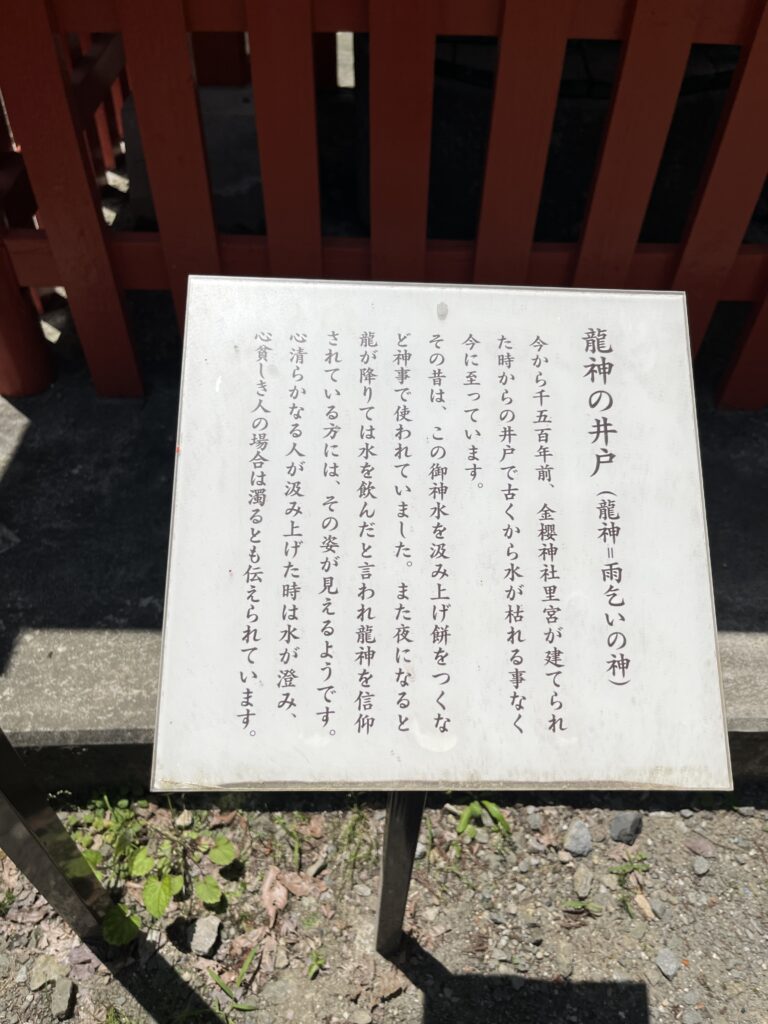 龍神の井戸（龍神＝雨乞いの神）
今から千五百年前、金櫻神社里宮が建てられ
た時からの井戸で古くから水が枯れる事なく
今に至っています。
その昔は、この御神水を汲み上げ餅をつくな
ど神事で使われていました。また夜になると
龍が降りては水を飲んだと言われ龍神を信仰
されている方には、その姿が見えるようです。
心清らかなる人が汲み上げた時は水が澄み、
心貧しき人の場合は濁るとも伝えられています。